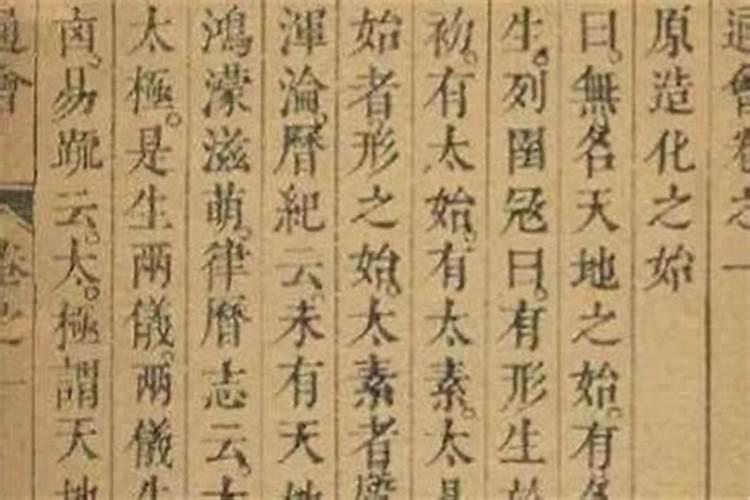 通會卷之一
原造化之始
曰。無名天地之始。有名
生。列圄冦曰。有形生於
初。有太始。有太素。太易
始者形之始。太素者
渾淪。曆紀云。未有天地
鴻濛滋萌。律曆志云。太
太極。是生兩儀。兩儀生
卤。易疏云。太極謂天地
通會
卷之一